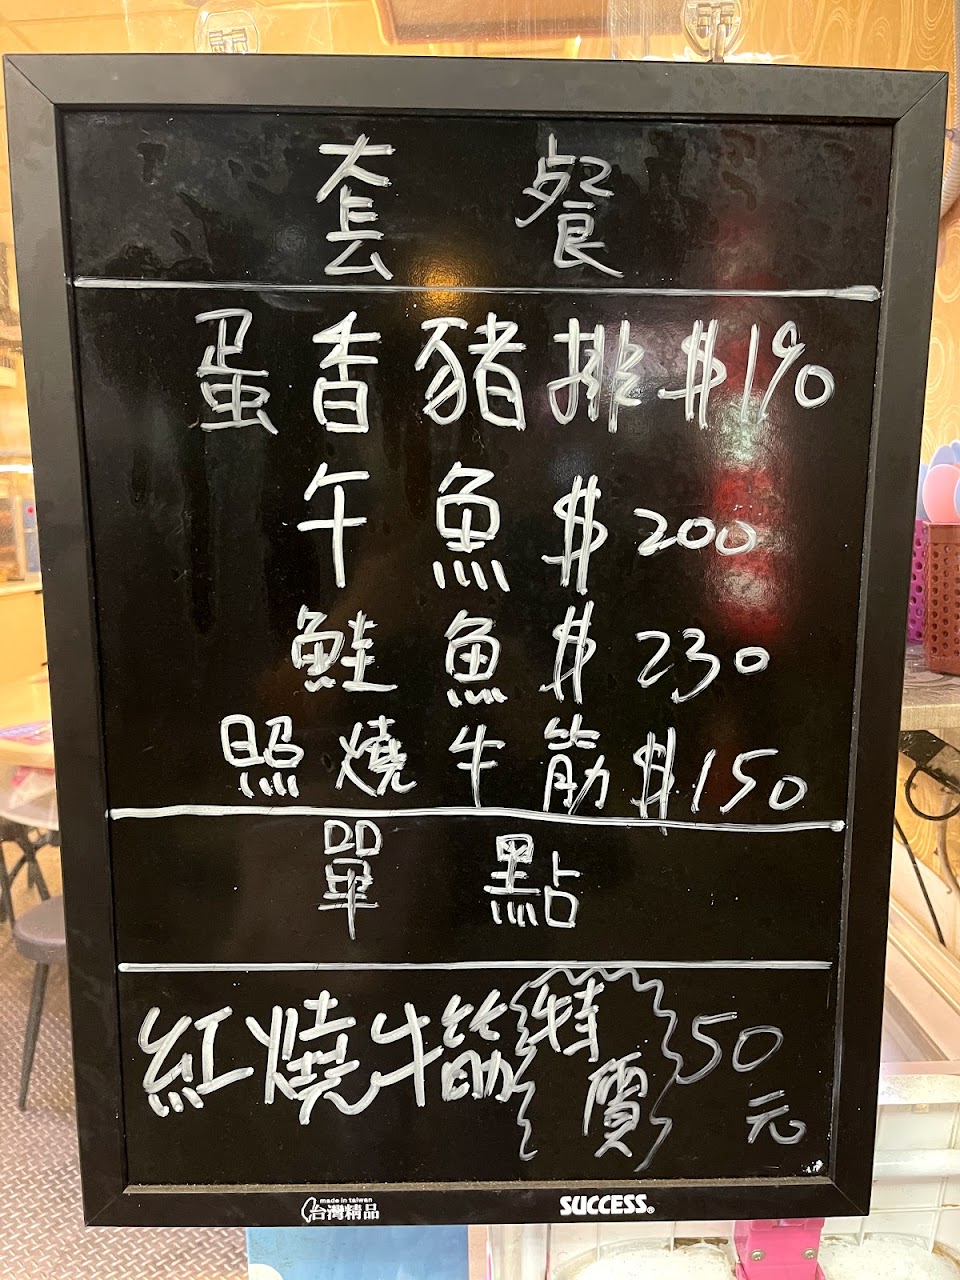 套餐
蛋香豬排$190
午魚$200
鮭魚$230
照燒牛筋$150
單點
紅燒牛筋特價50元
made in taiwan
台灣精品
SUCCESS®